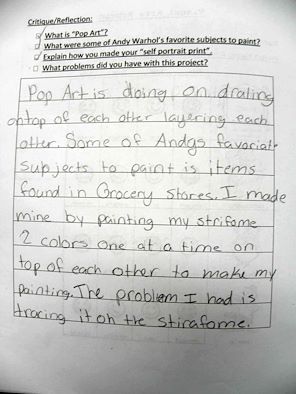 Critique/Reflection:
What is "Pop Art"?
What were some of Andy Warhol's favorite subjects to paint?
Explain how you made your "self portrait print".
What problems did you have with this project?
Pop Art is doing on drating
ontop of each other layering each
other. Some of Andys favoriate
Supjects to paint is items
found in Grocery stores. I made
mine by painting my strifome
2 colors one at a time on
top of each other to make my
painting. The problem I had is
tracing it oh the stirafome.